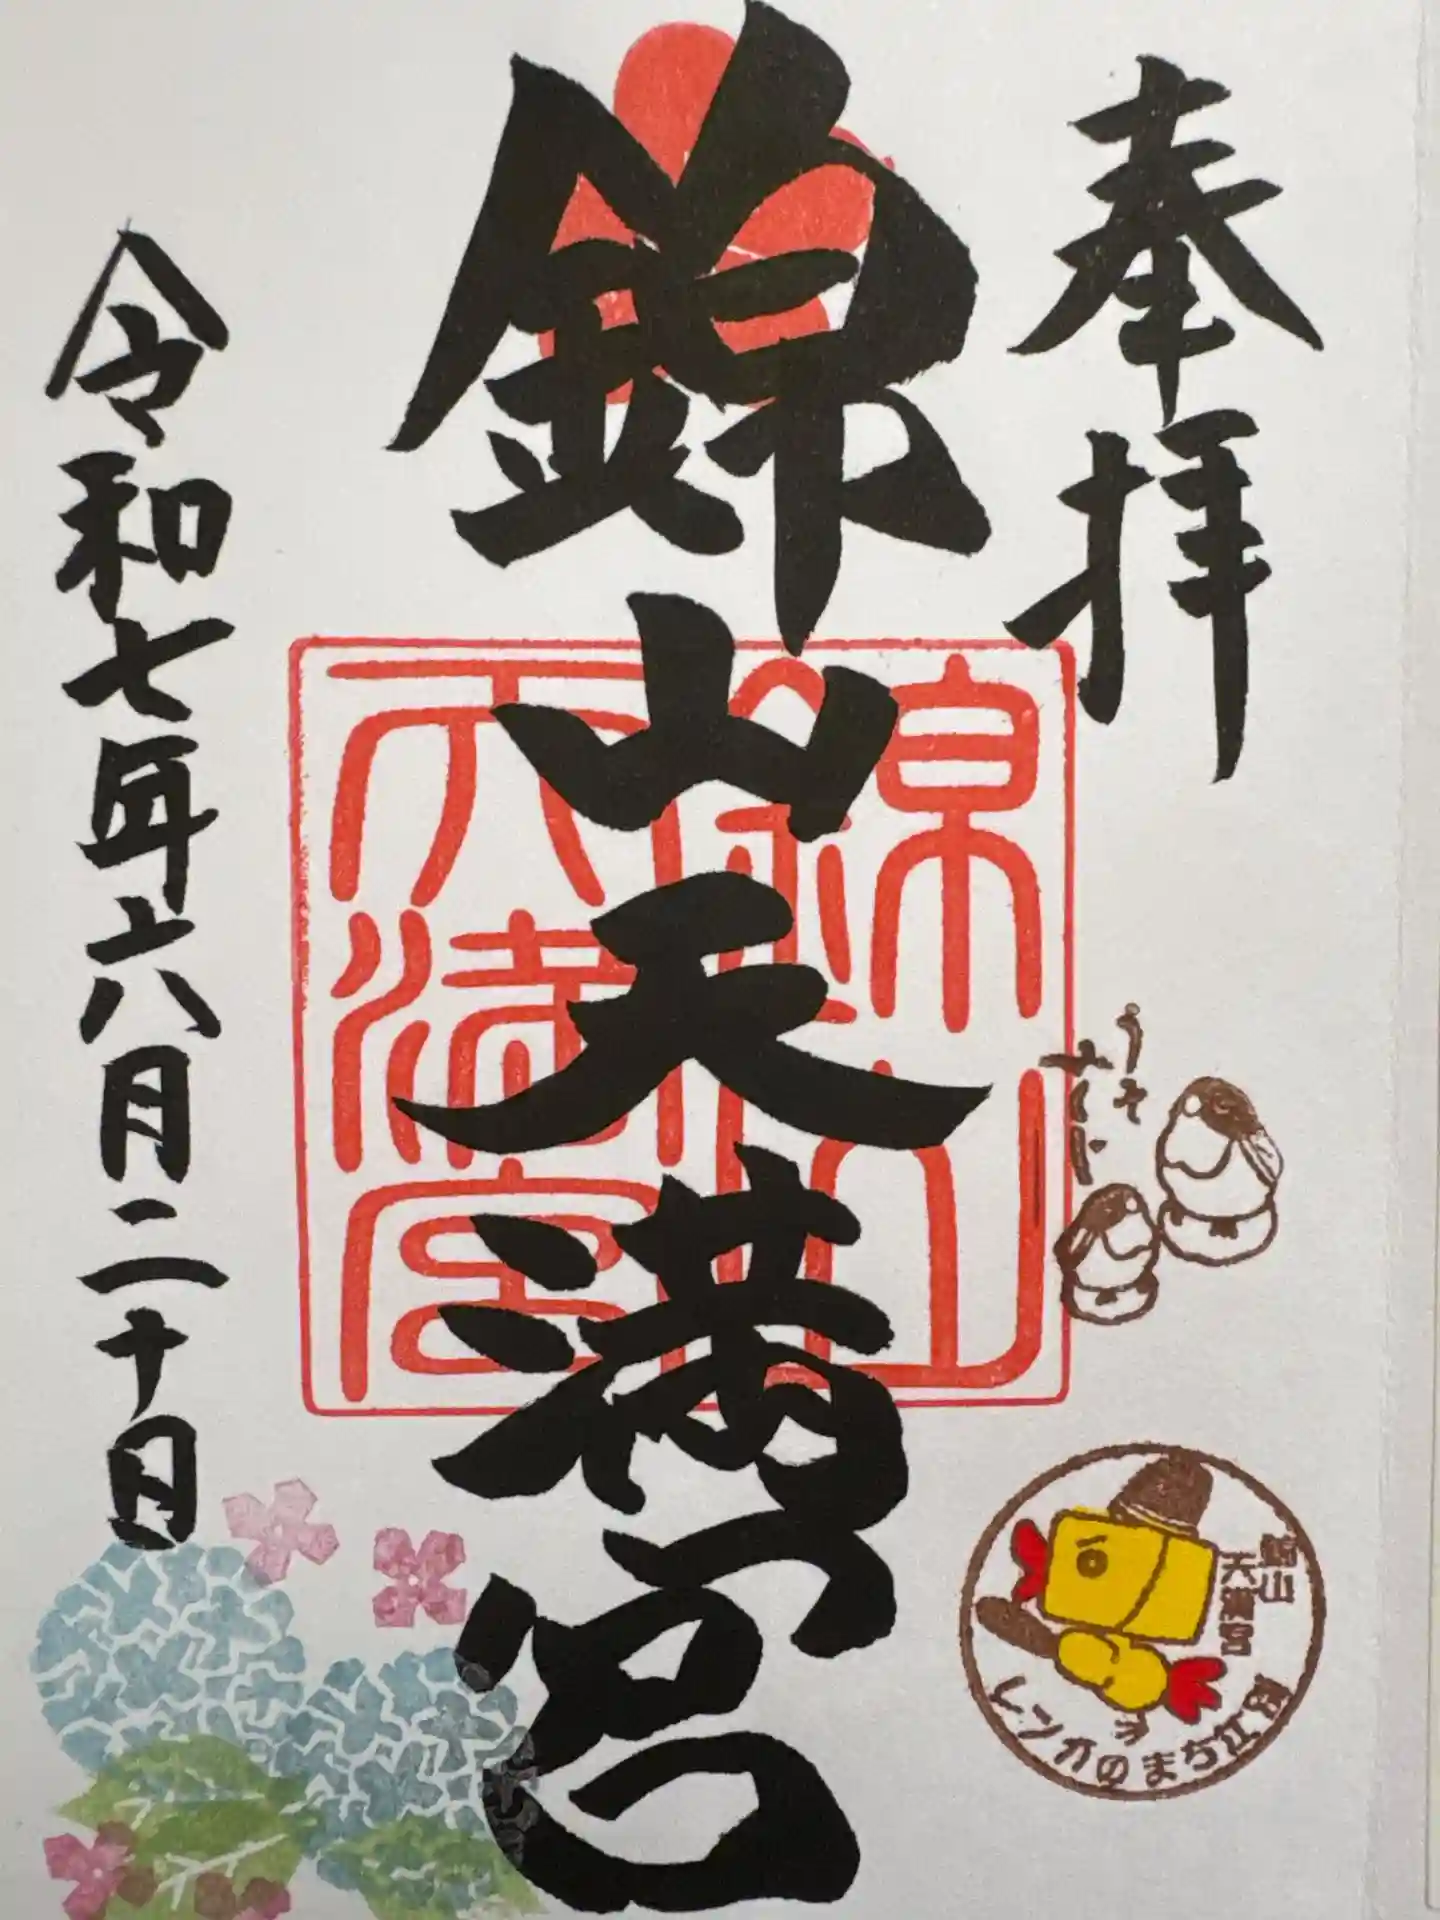 奉拝
錦山天満宮
令和七年六月二十日
錦山天満宮
うそ
みくじ
錦山
天満宮
レンガのまち江別